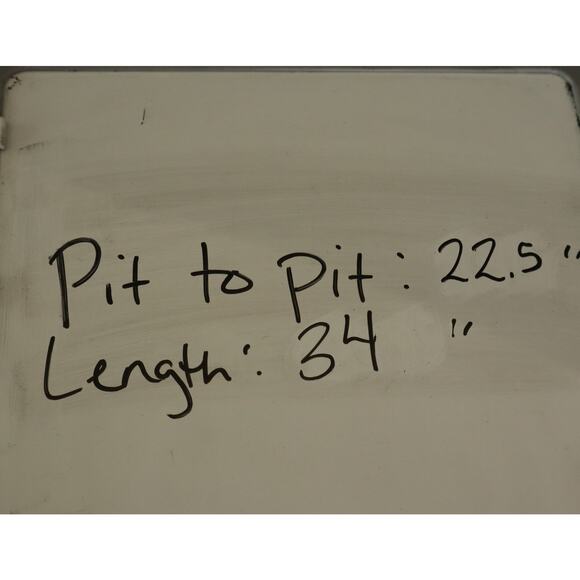 Pit to pit: 22.5"
Length: 34"